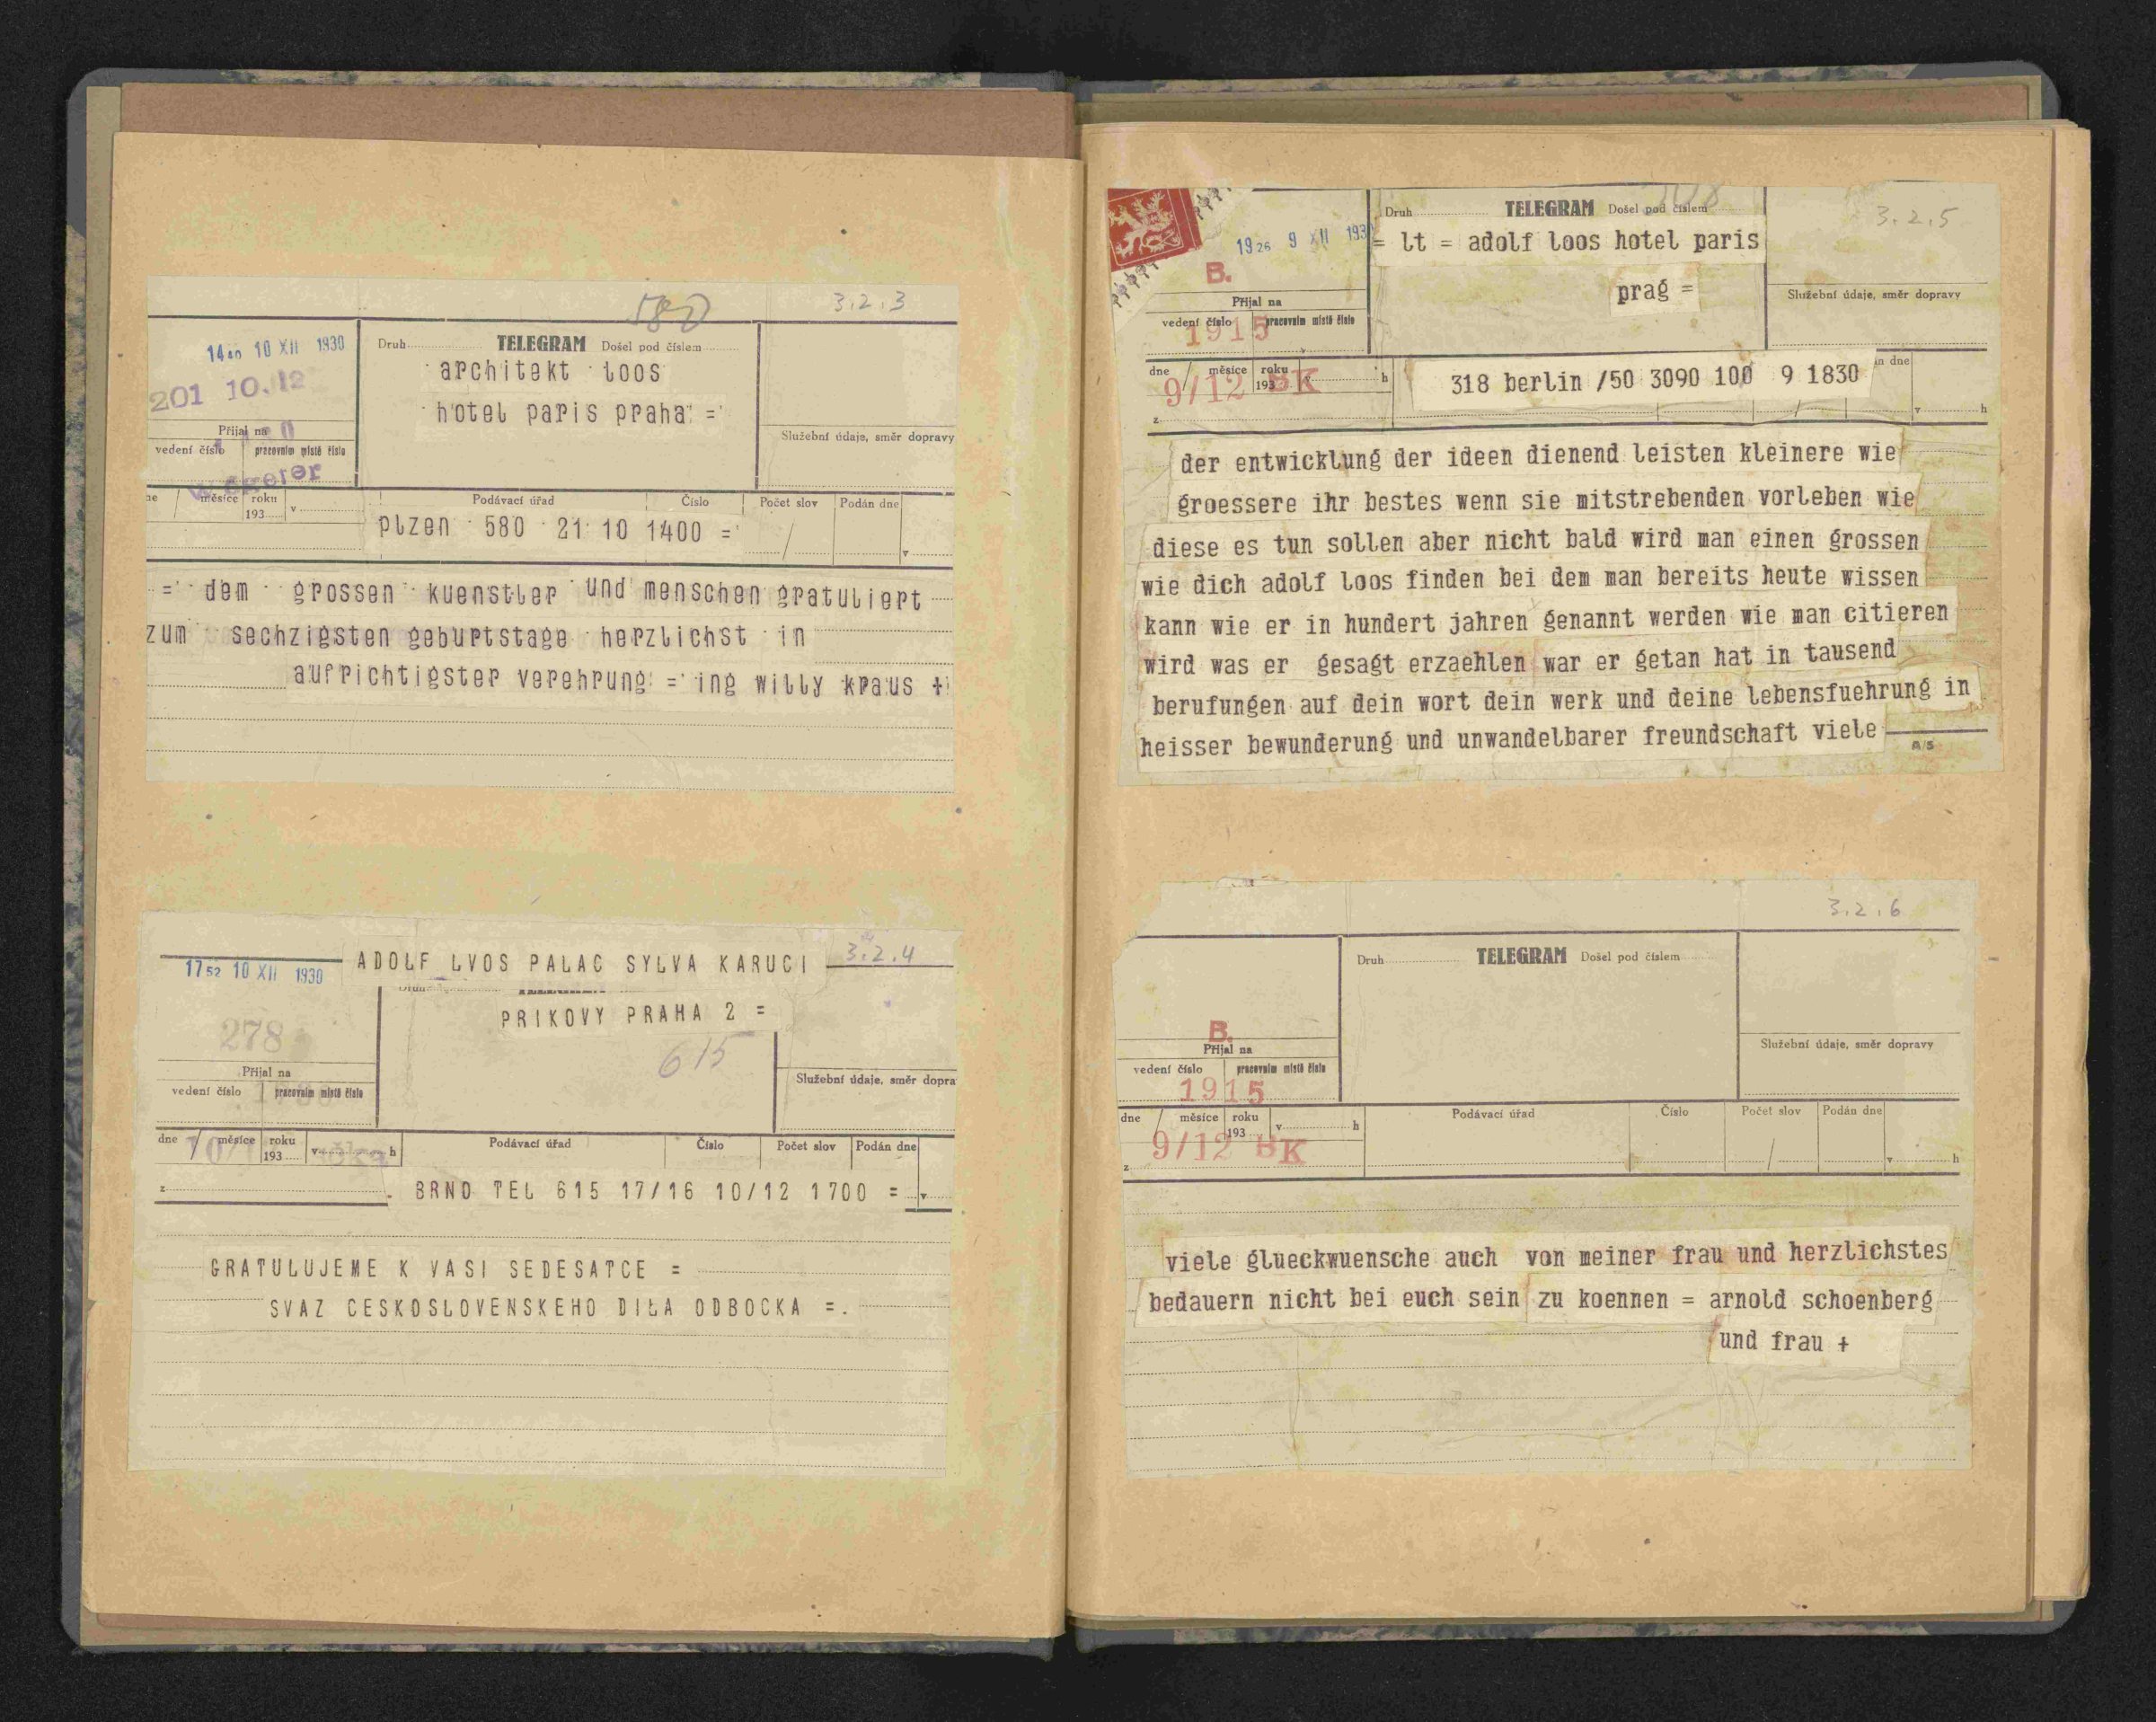 580
3.2.3
14 40 10 XII 1930
201 10.12
Druh
TELEGRAM Došel pod číslem
architekt loos
hotel paris praha =
Přijal na
vedení číslo
pracovním místě číslo
Služební údaje, směr dopravy
měsíce
roku
193
v
Podávací úřad
Číslo
Počet slov
Podán dne
plzen 580 21 10 1400 =
v
= dem grossen kuenstler und menschen gratuliert
zum sechzigsten geburtstage herzlichst in
aufrichtigster verehrung = ing willy kraus +
3.2.4
17 52 10 XII 1930
ADOLF LVOS PALAC SYLVA KARUCI
PRIKOVY PRAHA 2 =
278
615
Přijal na
vedení číslo
pracovním místě číslo
Služební údaje, směr dopra
dne
měsíce
roku
193
v
h
Podávací úřad
Číslo
Počet slov
Podán dne
z
BRNO TEL 615 17/16 10/12 1700 =
v
GRATULUJEME K VASI SEDESATCE =
SVAZ CESKOSLOVENSKEHO DILA ODBOCKA =.
3.2.5
19 26 9 XII 193
Druh
TELEGRAM Došel pod číslem
= lt = adolf loos hotel paris
prag =
B.
Přijal na
vedení číslo
pracovním místě číslo
1915
Služební údaje, směr dopravy
dne
měsíce
roku
193
v
h
9/12 BK
n dne
318 berlin /50 3090 100 9 1830
z
v
h
der entwicklung der ideen dienend leisten kleinere wie
groessere ihr bestes wenn sie mitstrebenden vorleben wie
diese es tun sollen aber nicht bald wird man einen grossen
wie dich adolf loos finden bei dem man bereits heute wissen
kann wie er in hundert jahren genannt werden wie man citieren
wird was er gesagt erzaehlen war er getan hat in tausend
berufungen auf dein wort dein werk und deine lebensfuehrung in
heisser bewunderung und unwandelbarer freundschaft viele
A/5
3.2.6
Druh
TELEGRAM Došel pod číslem
B.
Přijal na
vedení číslo
pracovním místě číslo
1915
Služební údaje, směr dopravy
dne
měsíce
roku
193
v
h
9/12 BK
Podávací úřad
Číslo
Počet slov
Podán dne
z
v
h
viele glueckwuensche auch von meiner frau und herzlichstes
bedauern nicht bei euch sein zu koennen = arnold schoenberg
und frau +